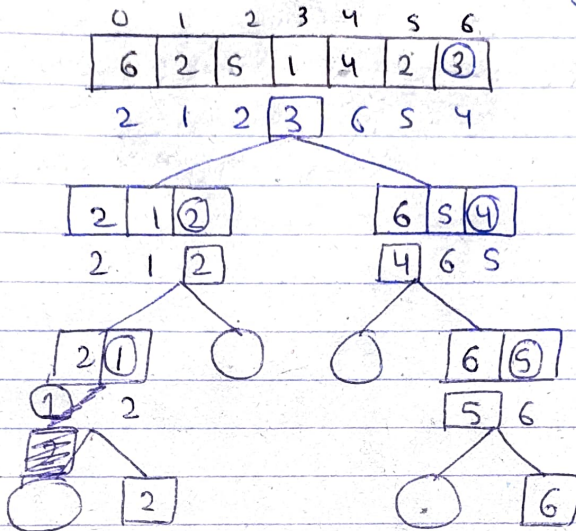 0 1 2 3 4 5 6
6 2 5 1 4 2 3
2 1 2 3 6 5 4
2 1 2 6 5 4
2 1 2 4 6 5
2 1 6 5
1 2 5 6
2 6